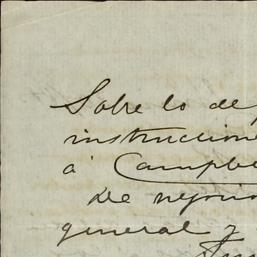 Sobre lo de
instruccione
á Campbe
De negocio
general y